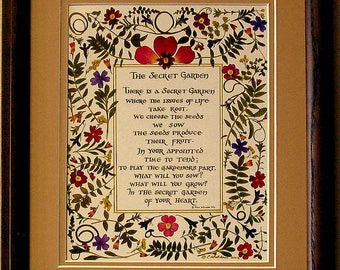 The Secret Garden
There is a Secret Garden
where the issues of life
take root.
We choose the seeds
we sow
the seeds produce
their fruit.
In your appointed
time to tend;
to play the gardeners part,
what will you sow?
what will you grow?
In the secret garden
of your heart.